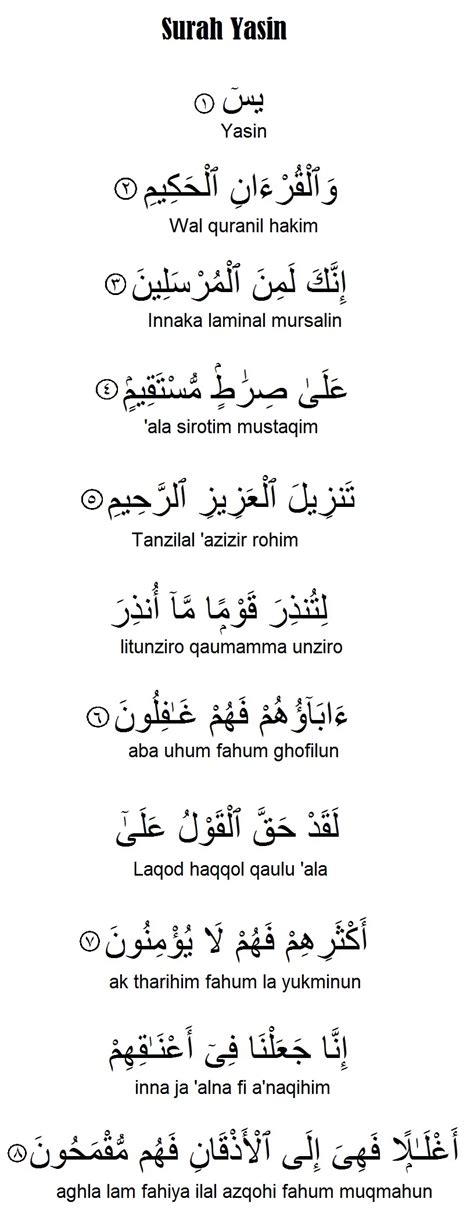 Surah Yasin
يسٓ ۝١
Yasin
وَٱلْقُرْءَانِ ٱلْحَكِيمِ ۝٢
Wal quranil hakim
إِنَّكَ لَمِنَ ٱلْمُرْسَلِينَ ۝٣
Innaka laminal mursalin
عَلَىٰ صِرَٰطٍۢ مُّسْتَقِيمٍۢ ۝٤
'ala sirotim mustaqim
تَنزِيلَ ٱلْعَزِيزِ ٱلرَّحِيمِ ۝٥
Tanzilal 'azizir rohim
لِتُنذِرَ قَوْمًۭا مَّآ أُنذِرَ
litunziro qaumamma unziro
ءَابَآؤُهُمْ فَهُمْ غَـٰفِلُونَ ۝٦
aba uhum fahum ghofilun
لَقَدْ حَقَّ ٱلْقَوْلُ عَلَىٰٓ
Laqod haqqol qaulu 'ala
أَكْثَرِهِمْ فَهُمْ لَا يُؤْمِنُونَ ۝٧
ak tharihim fahum la yukminun
إِنَّا جَعَلْنَا فِىٓ أَعْنَـٰقِهِمْ
inna ja 'alna fi a'naqihim
أَغْلَـٰلًۭا فَهِىَ إِلَى ٱلْأَذْقَانِ فَهُم مُّقْمَحُونَ ۝٨
aghla lam fahiya ilal azqohi fahum muqmahun